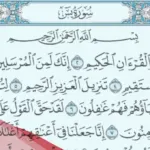 سُورَةُ يسٓ
بِسْمِ اللَّهِ الرَّحْمَٰنِ الرَّحِيمِ
وَالْقُرْءَانِ الْحَكِيمِ ٢ إِنَّكَ لَمِنَ الْمُرْسَلِينَ
تَنزِيلَ الْعَزِيزِ الرَّحِيمِ ٥
ءَابَاؤُهُمْ فَهُمْ غَٰفِلُونَ ٦ لَقَدْ حَقَّ الْقَوْلُ عَلَىٰ
إِنَّا جَعَلْنَا فِىٓ أَعْنَٰقِهِمْ